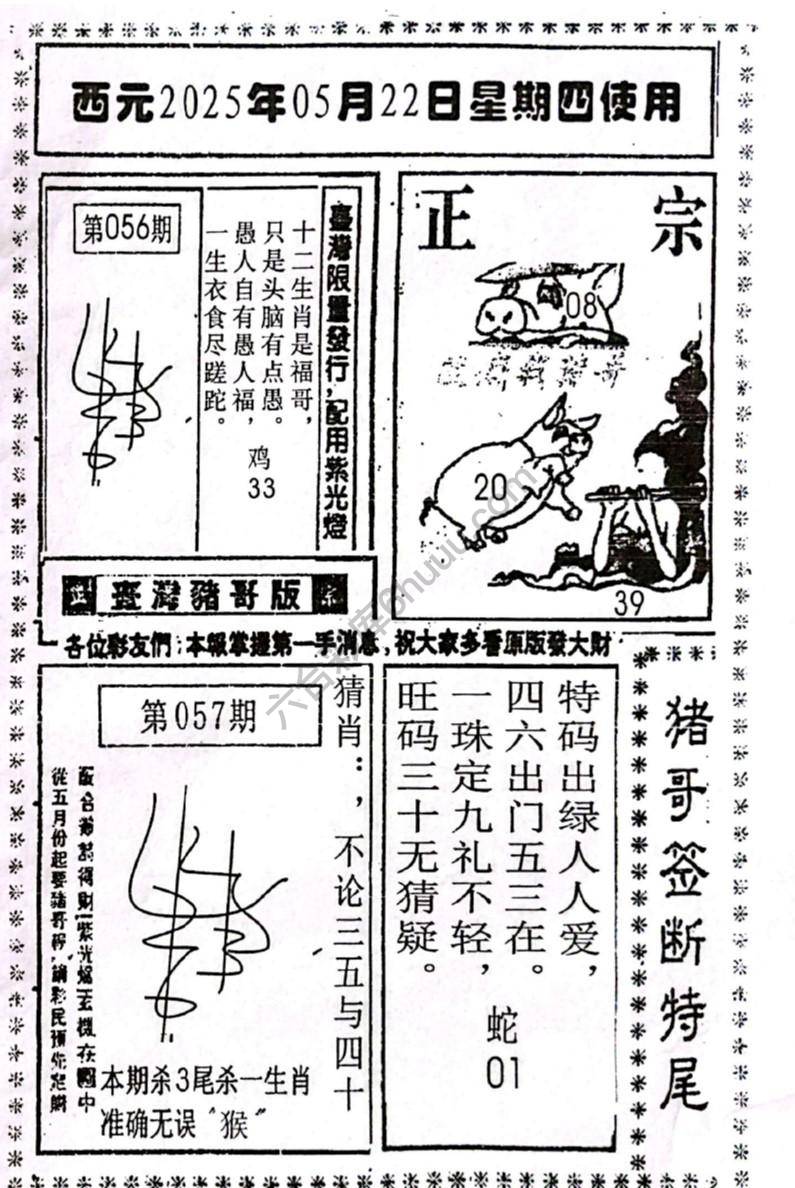 西元2025年05月22日星期四使用
第056期
臺灣限量發行,配用紫光燈
十二生肖是福哥，
只是头脑有点愚。
愚人自有愚人福，
一生衣食尽蹉跎。
鸡
33
正宗
08
20
39
臺灣豬哥版
各位彩友們:本報掌握第一手消息,祝大家多看原版發大財
第057期
猜肖:，不论三五与四十
從五月份起要豬哥報
本期杀3尾杀一生肖
准确无误“猴”
特码出绿人人爱，
四六出门五三在。
一珠定九礼不轻，
旺码三十无猜疑。
蛇
01
猪哥签断特尾
六合彩库6huuu.com